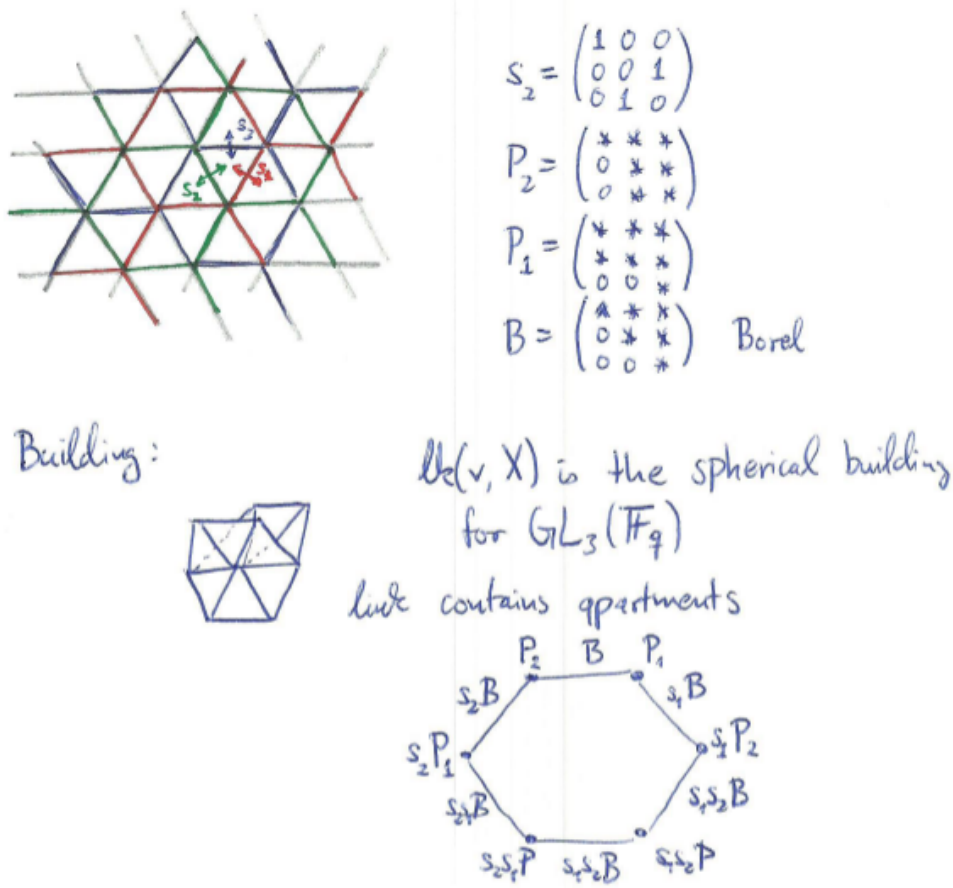 s₃
s₂
s₂ = ( 1 0 0
0 0 1
0 1 0 )
P₂ = ( * * *
0 * *
0 * * )
P₁ = ( * * *
* * *
0 0 * )
B = ( * * *
0 * *
0 0 * ) Borel
Building:
lk(v, X) is the spherical building
for GL₃(𝔽q)
link contains apartments
P₂ B P₁
s₂B s₁B
s₂P₁ s₁P₂
s₂s₁B s₁s₂B
s₂s₁P s₁s₂B s₁s₂P